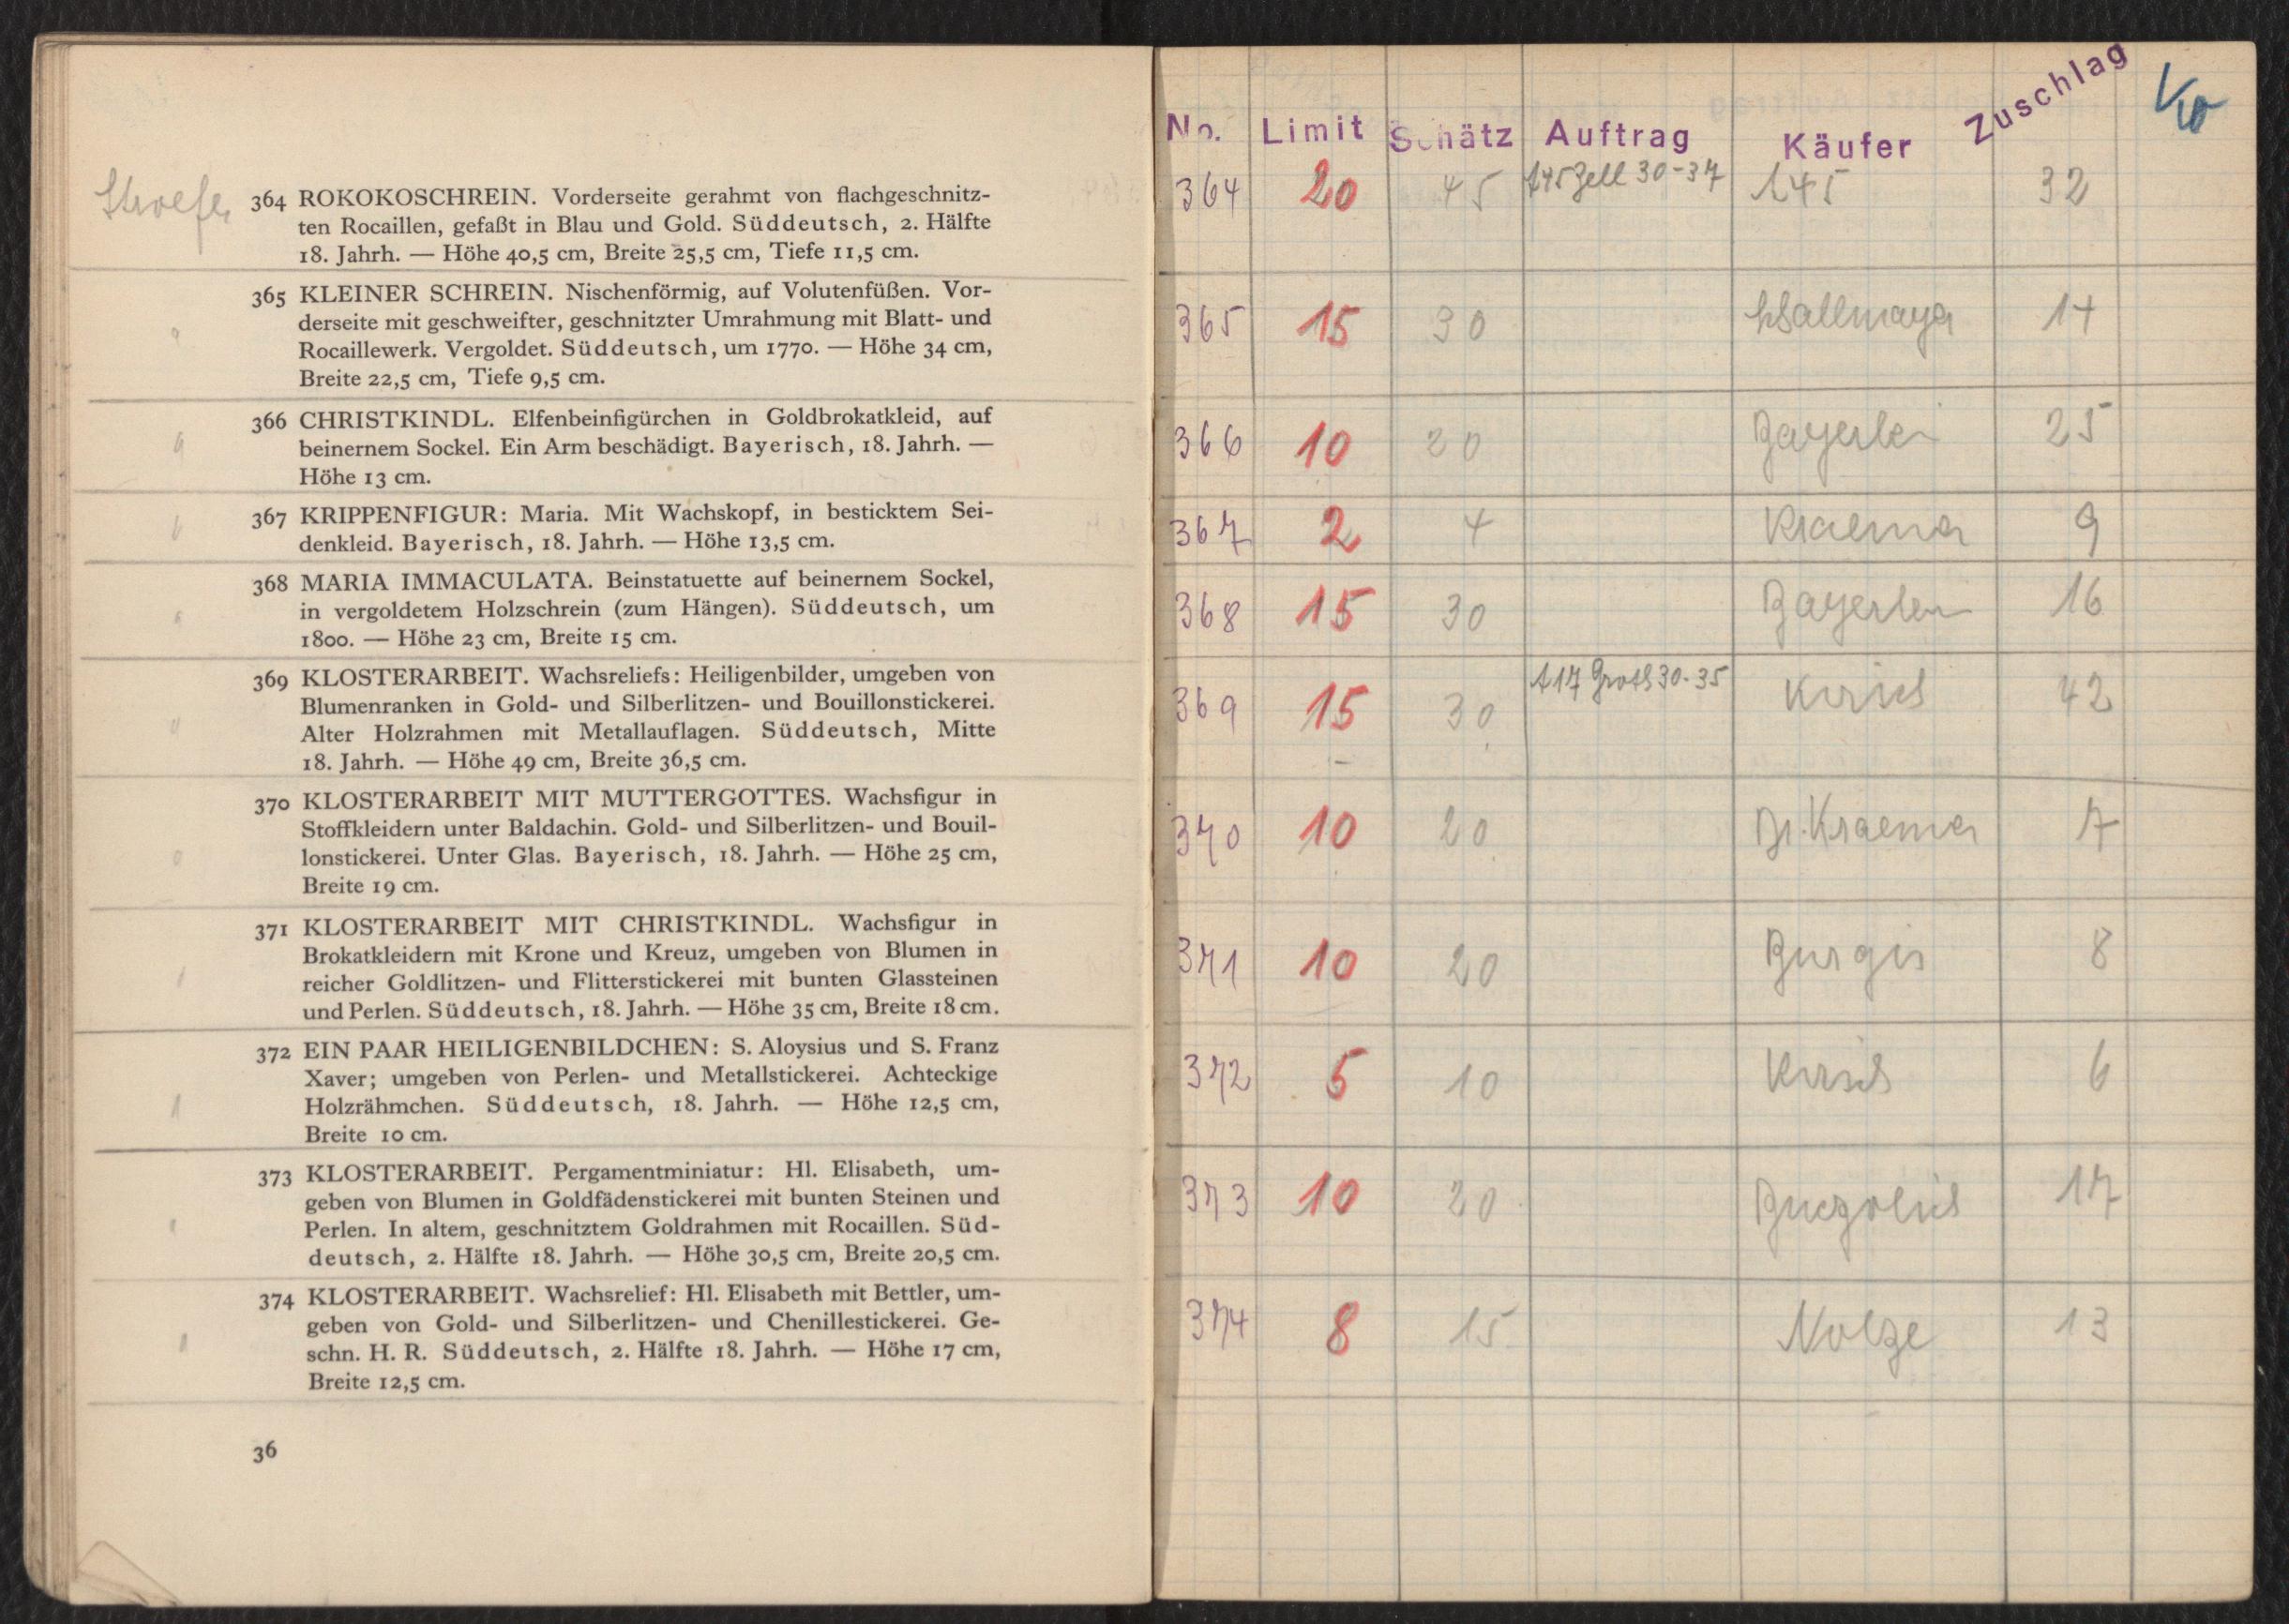 364 ROKOKOSCHREIN. Vorderseite gerahmt von flachgeschnitz-
ten Rocaillen, gefaßt in Blau und Gold. Süddeutsch, 2. Hälfte
18. Jahrh. — Höhe 40,5 cm, Breite 25,5 cm, Tiefe 11,5 cm.
365 KLEINER SCHREIN. Nischenförmig, auf Volutenfüßen. Vor-
derseite mit geschweifter, geschnitzter Umrahmung mit Blatt- und
Rocaillewerk. Vergoldet. Süddeutsch, um 1770. — Höhe 34 cm,
Breite 22,5 cm, Tiefe 9,5 cm.
366 CHRISTKINDL. Elfenbeinfigürchen in Goldbrokatkleid, auf
beinernem Sockel. Ein Arm beschädigt. Bayerisch, 18. Jahrh. —
Höhe 13 cm.
367 KRIPPENFIGUR: Maria. Mit Wachskopf, in besticktem Sei-
denkleid. Bayerisch, 18. Jahrh. — Höhe 13,5 cm.
368 MARIA IMMACULATA. Beinstatuette auf beinernem Sockel,
in vergoldetem Holzschrein (zum Hängen). Süddeutsch, um
1800. — Höhe 23 cm, Breite 15 cm.
369 KLOSTERARBEIT. Wachsreliefs: Heiligenbilder, umgeben von
Blumenranken in Gold- und Silberlitzen- und Bouillonstickerei.
Alter Holzrahmen mit Metallauflagen. Süddeutsch, Mitte
18. Jahrh. — Höhe 49 cm, Breite 36,5 cm.
370 KLOSTERARBEIT MIT MUTTERGOTTES. Wachsfigur in
Stoffkleidern unter Baldachin. Gold- und Silberlitzen- und Bouil-
lonstickerei. Unter Glas. Bayerisch, 18. Jahrh. — Höhe 25 cm,
Breite 19 cm.
371 KLOSTERARBEIT MIT CHRISTKINDL. Wachsfigur in
Brokatkleidern mit Krone und Kreuz, umgeben von Blumen in
reicher Goldlitzen- und Flitterstickerei mit bunten Glassteinen
und Perlen. Süddeutsch, 18. Jahrh. — Höhe 35 cm, Breite 18 cm.
372 EIN PAAR HEILIGENBILDCHEN: S. Aloysius und S. Franz
Xaver; umgeben von Perlen- und Metallstickerei. Achteckige
Holzrähmchen. Süddeutsch, 18. Jahrh. — Höhe 12,5 cm,
Breite 10 cm.
373 KLOSTERARBEIT. Pergamentminiatur: Hl. Elisabeth, um-
geben von Blumen in Goldfädenstickerei mit bunten Steinen und
Perlen. In altem, geschnitztem Goldrahmen mit Rocaillen. Süd-
deutsch, 2. Hälfte 18. Jahrh. — Höhe 30,5 cm, Breite 20,5 cm.
374 KLOSTERARBEIT. Wachsrelief: Hl. Elisabeth mit Bettler, um-
geben von Gold- und Silberlitzen- und Chenillestickerei. Ge-
schn. H. R. Süddeutsch, 2. Hälfte 18. Jahrh. — Höhe 17 cm,
Breite 12,5 cm.
36
No. Limit Schätz Auftrag Käufer Zuschlag
364 20 45 A45 Zell 30-37 A45 32
365 15 30 14
366 10 20 25
367 2 4 Kraemer 9
368 15 30 16
369 15 30 A17 Groth 30-35 Kirsch 42
370 10 20 Dr. Kraemer 7
371 10 20 8
372 5 10 Kirsch 6
373 10 20 17
374 8 15 Nolze 13